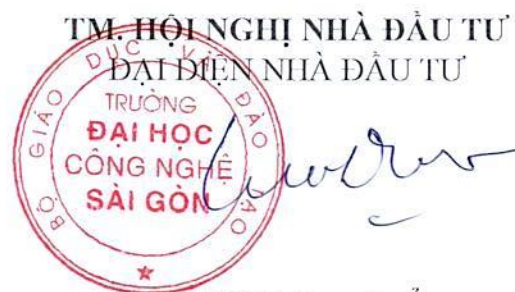 TM. HỘI NGHỊ NHÀ ĐẦU TƯ
ĐẠI DIỆN NHÀ ĐẦU TƯ
BỘ GIÁO DỤC VÀ ĐÀO TẠO
TRƯỜNG
ĐẠI HỌC
CÔNG NGHỆ
SÀI GÒN